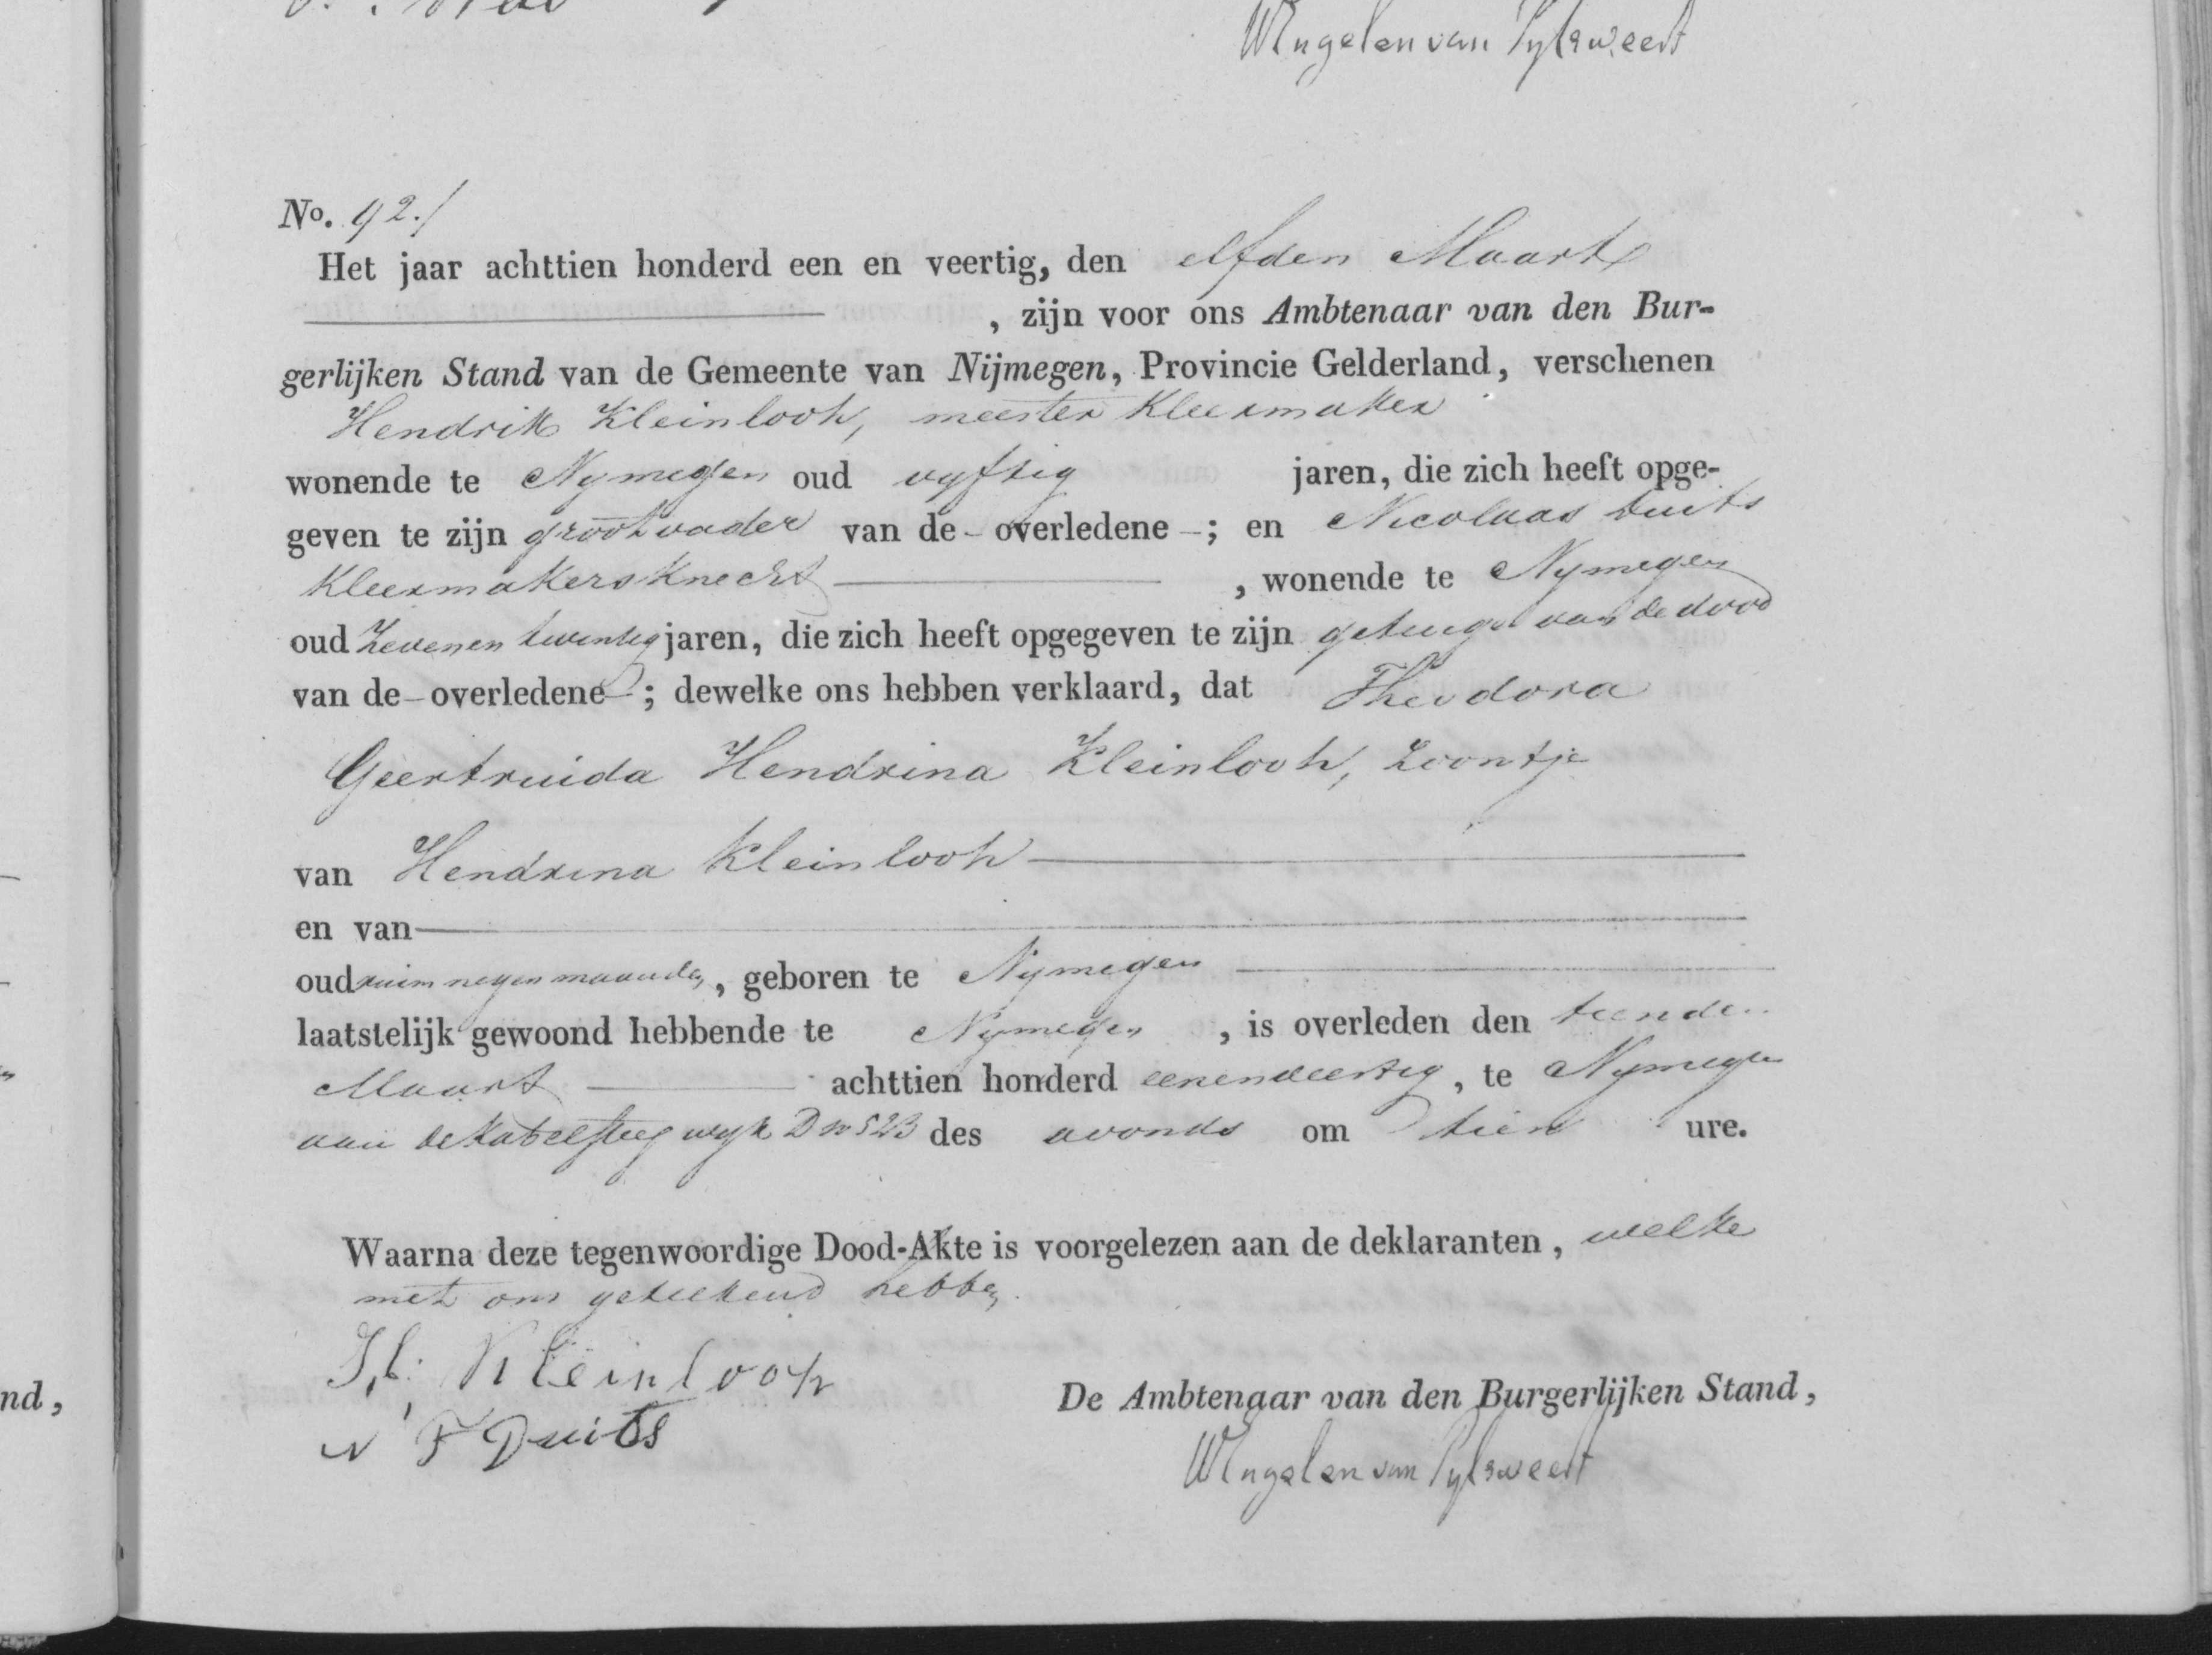 Wingelen van Pylsweert
No. 92./
Het jaar achttien honderd een en veertig, den elfden Maart
, zijn voor ons Ambtenaar van den Bur-
gerlijken Stand van de Gemeente van Nijmegen, Provincie Gelderland, verschenen
Hendrik Kleinlooh, meester Kleermaker
wonende te Nymegen oud vyftig jaren, die zich heeft opge-
geven te zijn grootvader van de - overledene -; en Nicolaas Duits
Kleermakersknecht , wonende te Nymegen
oud Zevenen twintig jaren, die zich heeft opgegeven te zijn getuige van de dood
van de - overledene - ; dewelke ons hebben verklaard, dat Theodora
Geertruida Hendrina Kleinlooh, Zoontje
van Hendrina Kleinlooh
en van
oud ruim negen maanden, geboren te Nymegen
laatstelijk gewoond hebbende te Nymegen, is overleden den tienden
Maart achttien honderd eenenveertig, te Nymegen
aan de Kabelsteeg wyk D no 523 des avonds om tien ure.
Waarna deze tegenwoordige Dood-Akte is voorgelezen aan de deklaranten, welke
met ons geteekend hebben.
H: Kleinlooh
N F Duits
De Ambtenaar van den Burgerlijken Stand,
Wingelen van Pylsweert
nd,